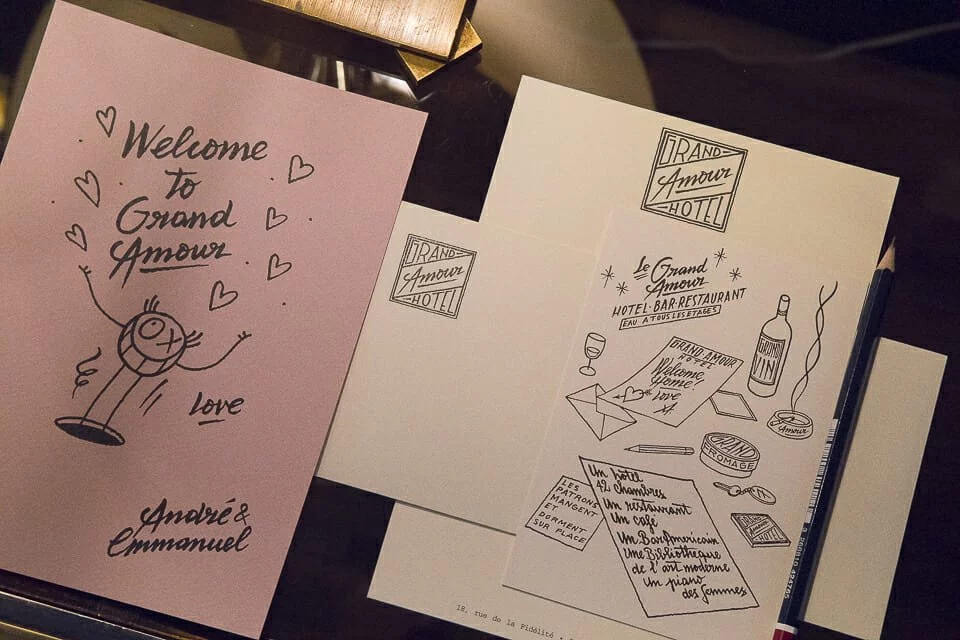 Welcome
to
Grand
Amour
Love
André &
Emmanuel
GRAND
Amour
HOTEL
GRAND
Amour
HOTEL
Le Grand
Amour
HOTEL·BAR·RESTAURANT
EAU A TOUS LES ETAGES
GRAND AMOUR
HOTEL
Welcome
Home!
Love
XA
GRAND
VIN
Amour
GRAND
FROMAGE
LES
PATRONS
MANGENT
ET
DORMENT
SUR PLACE
Un hôtel
42 chambres
Un restaurant
Un café
Un Bar Americain
Une Bibliothèque
de l'art moderne
Un piano
des femmes
GRAND
Amour
HOTEL
18, rue de la Fidélité